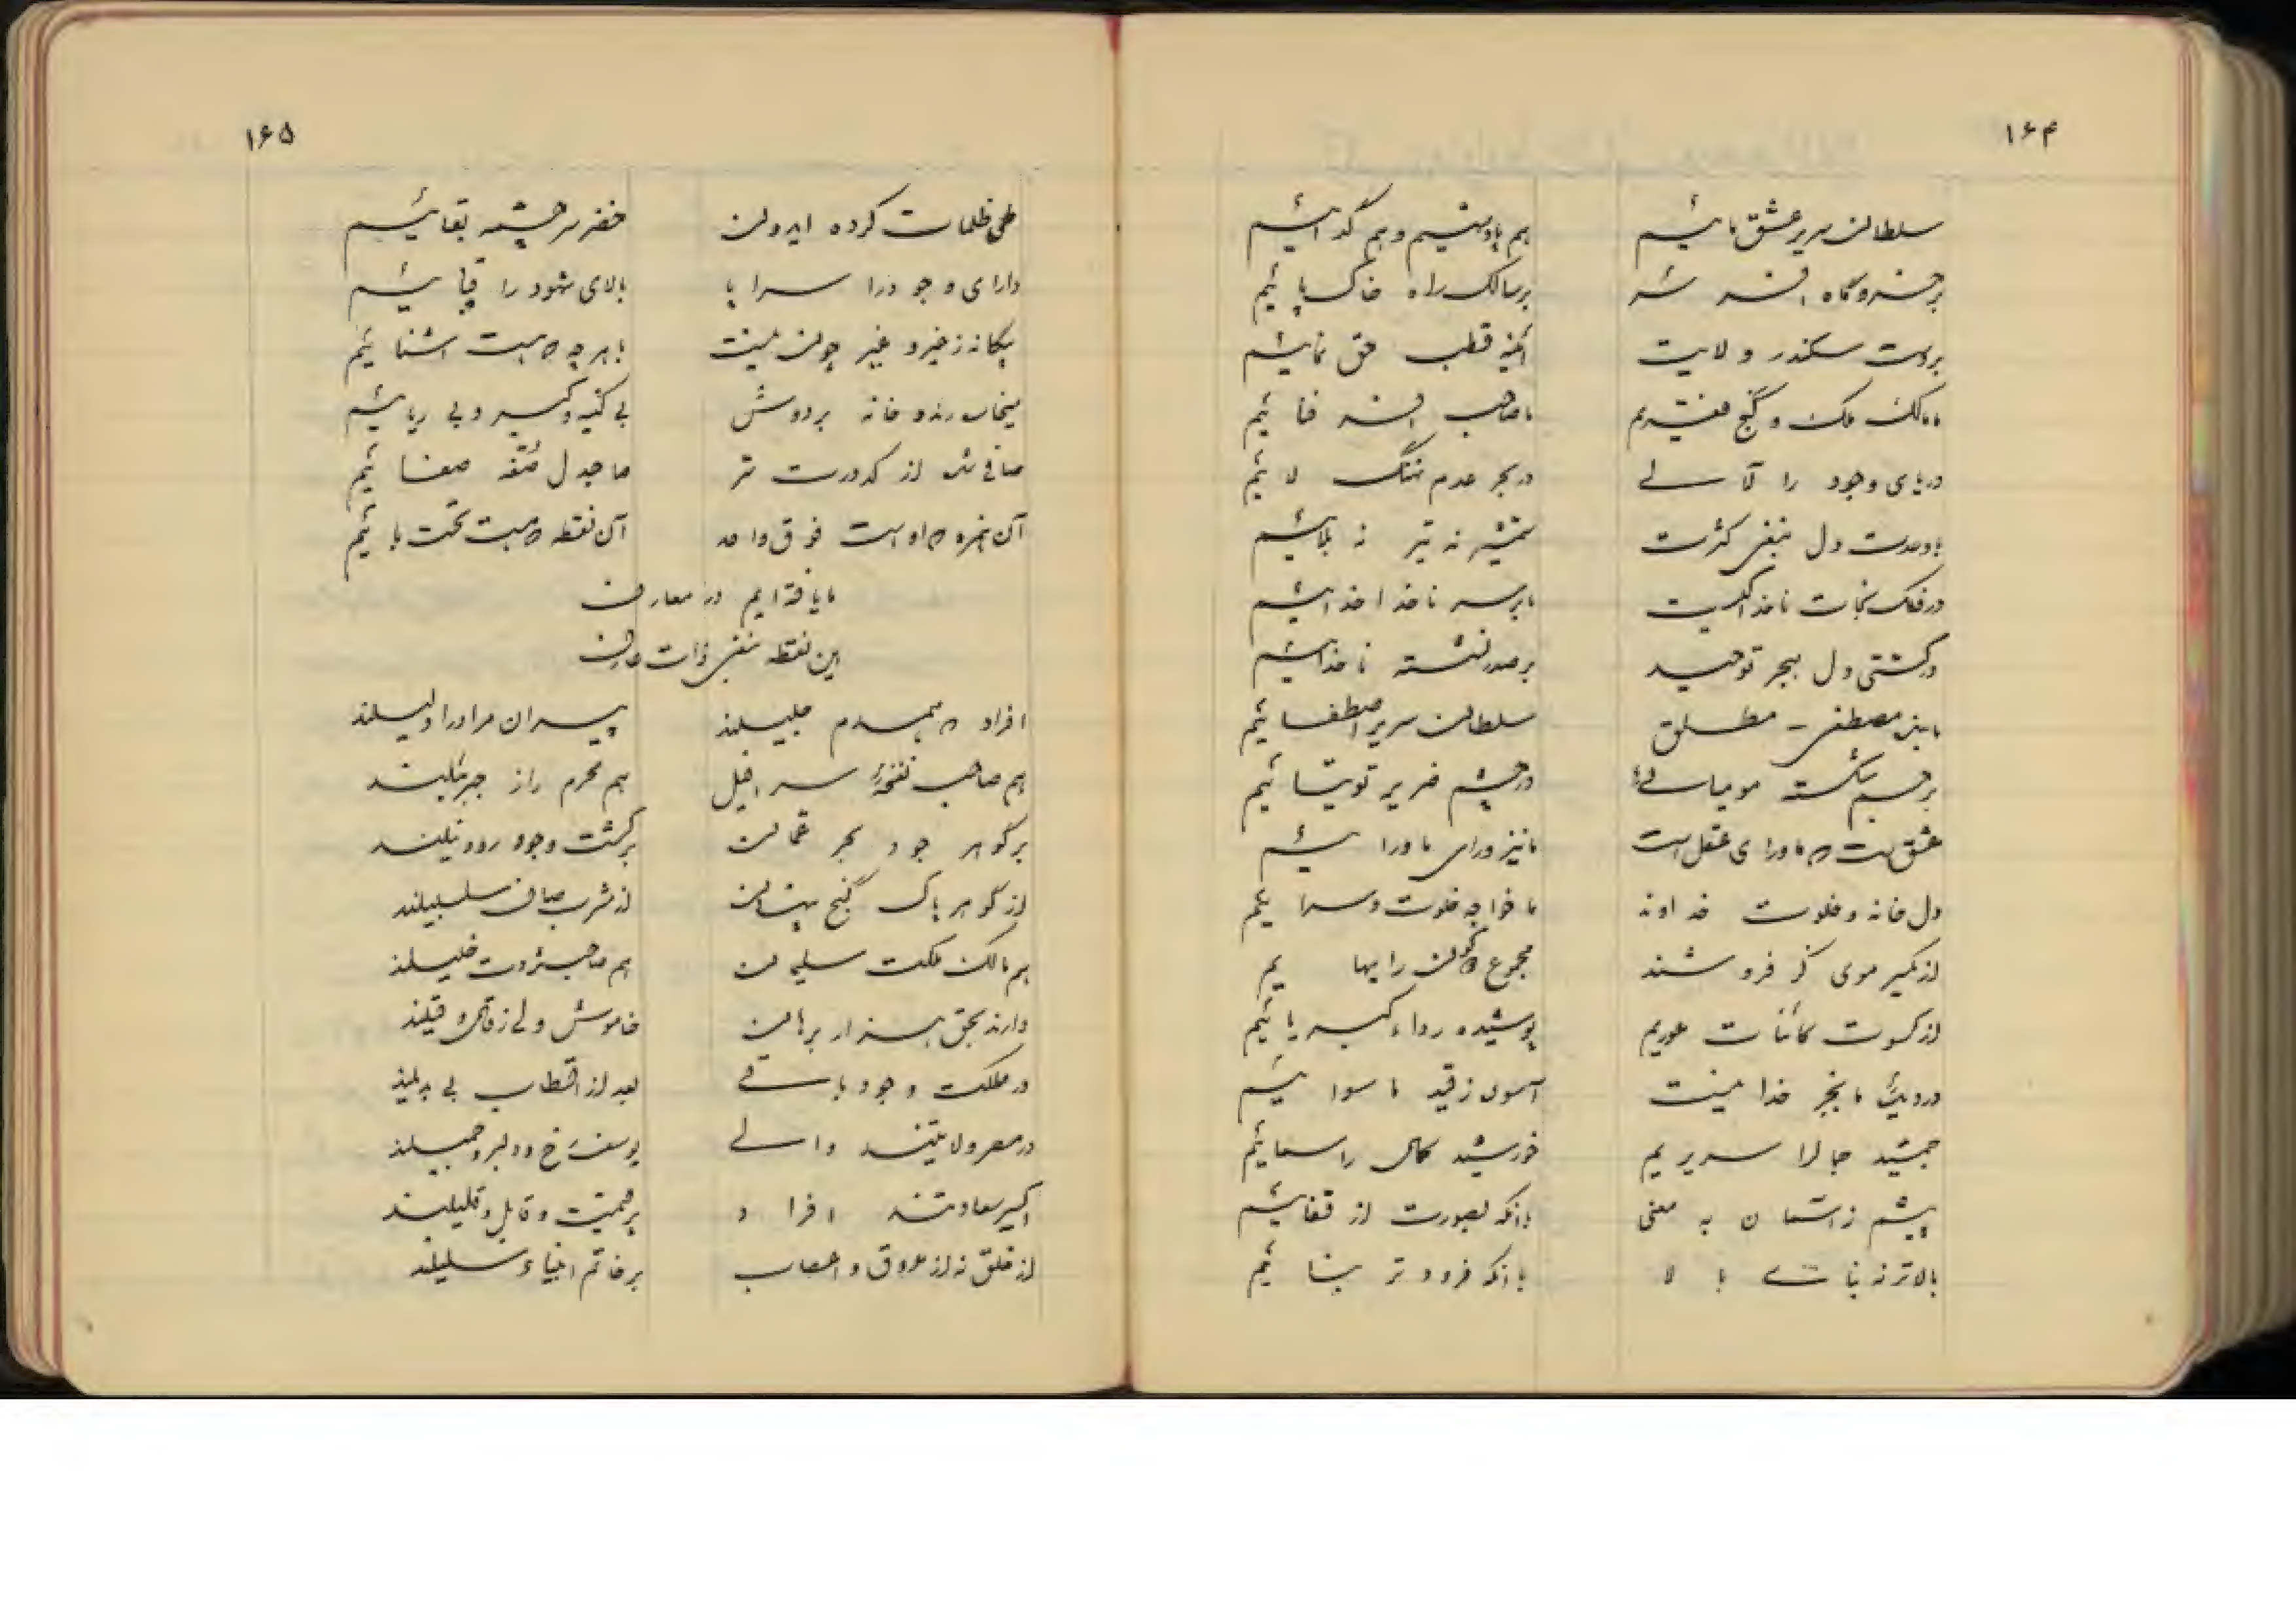 ۱۶۴
سلطان سریر عشق مائیم هم پادشهیم و هم گدائیم
بر سالک راه خاک پائیم
بر دست سکندر ولایت آئینه قطب حق نمائیم
ما مالک ملک و گنج فقریم ما صاحب افسر فنائیم
دریای وجود را لآلی در بحر عدم نهنگ لائیم
با وحدت دل بنفی کثرت شمشیر نه تیر نه بلائیم
در فلک نجات ناخدا کیست ما بر سر ناخدا خدائیم
در کشتی دل ببحر توحید بر صدر نشسته ناخدائیم
مطلق سلطان سریر اصطفائیم
بر جسم شکسته مومیائی در چشم ضریر توتیائیم
عشق است که ماورای عقل است ما نیز ورای ماورائیم
دل خانه و خلوت خداوند ما خواجه خلوت و سرائیم
از یکسر موی گر فروشند مجموع کون را بهائیم
از کسوت کائنات عوریم پوشیده رداء کبریائیم
در دیده ما بجز خدا نیست آسوده ز قید ماسوائیم
جمشید جلال را سریریم خورشید کمال را سمائیم
پیشیم ز آسمان به معنی با آنکه بصورت از قفائیم
بالاتر نه بنای بالا با آنکه فرودتر بنائیم
۱۶۵
طی ظلمات کرده ایدون خضر سرچشمه بقائیم
دارای وجود را سراپا بالای شهود را قبائیم
بیگانه ز غیر و غیر چون نیست با هر چه که هست آشنائیم
میخاره رند و خانه بر دوش بی کینه و کبر و بی ریائیم
صافی شده از کدورت تن ما جدل صفه صفائیم
آن نمره که او است فوق واحد آن نقطه که هست تحت بائیم
ما یافته ایم در معارف
این نقطه بنفس ذات عارف
افراد که همدم جلیلند پیران مراد را دلیلند
هم صاحب نفخه سرافیل هم محرم راز جبرئیلند
بر گوهر جود بحر عمان بر کشت وجود رود نیلند
از گوهر پاک گنج پنهان از مشرب صاف سلسبیلند
هم مالک ملکت سلیمان هم صاحب ثروت خلیلند
دارند بحق هزار برهان خاموش ولی ز قال و قیلند
در مملکت وجود باقی بعد از اقطاب بی بدیلند
در مصر ولایتند والی یوسف رخ و دلبر و جمیلند
اکسیر سعادتند افراد پر قیمت و قابل و قلیلند
از خلق نه از عروق و اعصاب بر خاتم انبیاء سلیلند